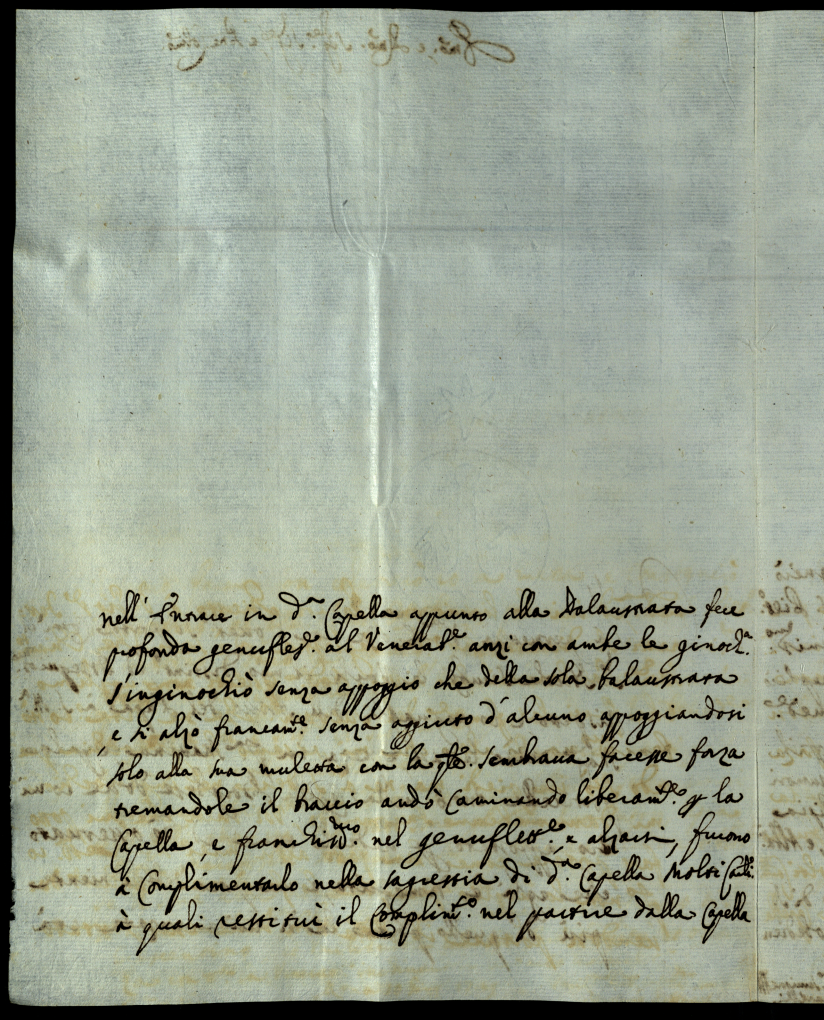 nell' Entrare in d.ª Capella appunto alla Balaustrata fece
profonda genufless.e al Venerab.e anzi con ambe le ginoch.ª
s'inginochiò senza appoggio che della sola balaustrata
e si alzò francam.te senza aggiuto d'alcuno appoggiandosi
solo alla sua muletta con la q̄le. sembraua facesse forza
tremandole il braccio andò Caminando liberam.te p la
Capella, e franchiss.mo nel genuflett.e e alzarsi, furono
à Complimentarlo nella sagrestia di d.ª Capella Molti Car.li
à quali restituì il Complim.to nel partire dalla Capella